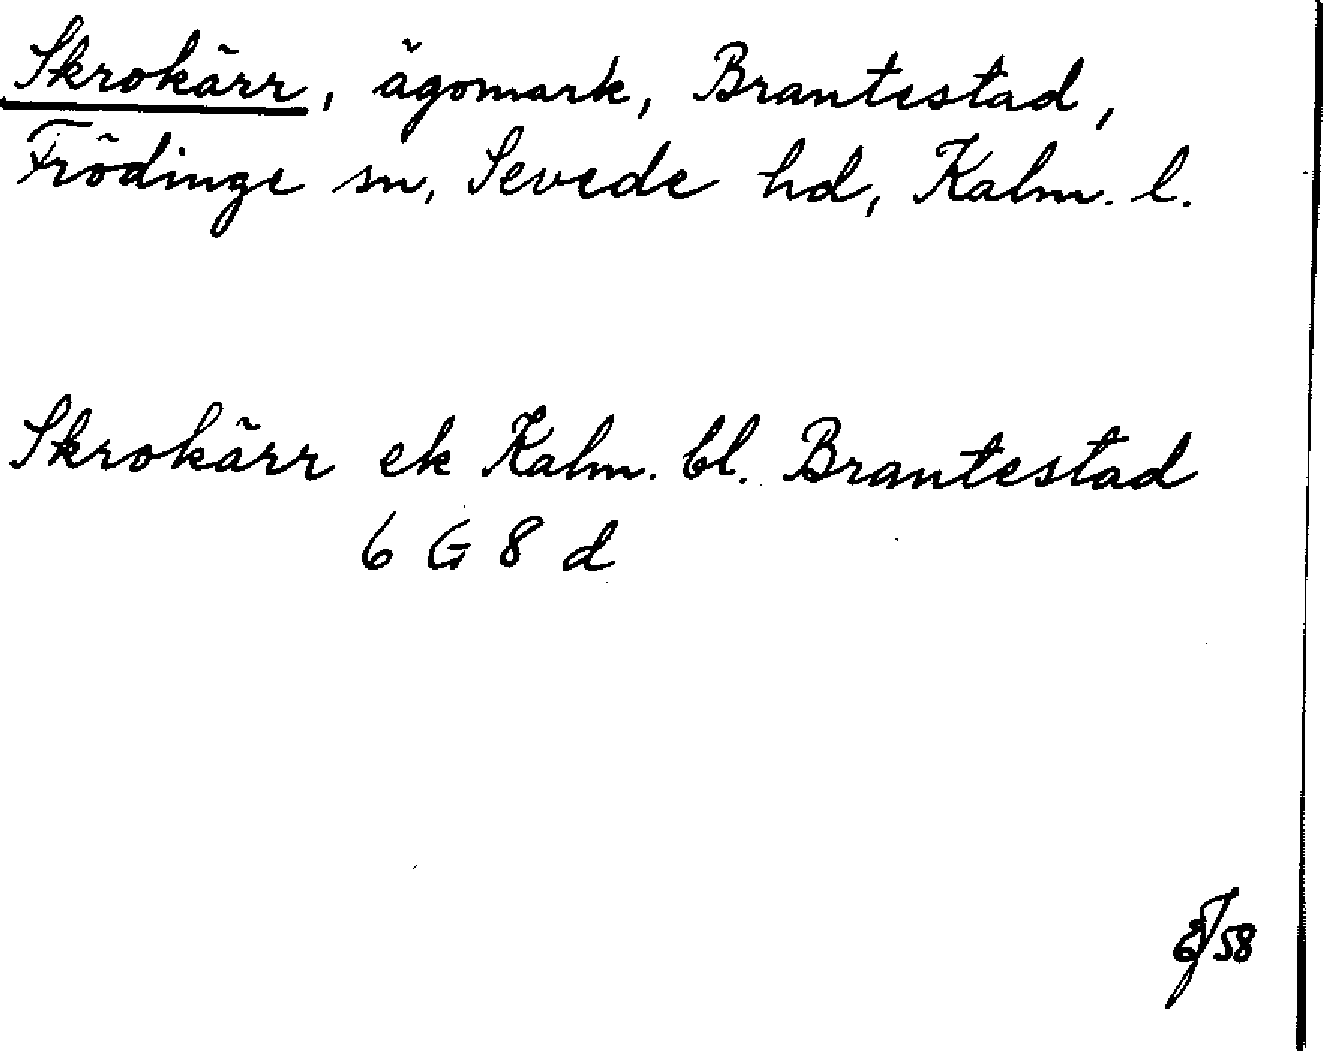 Skrokärr, ägomark, Brantestad,
Frödinge sn, Sevede hd, Kalm. l.
Skrokärr ek Kalm. bl. Brantestad
6 G 8 d
58